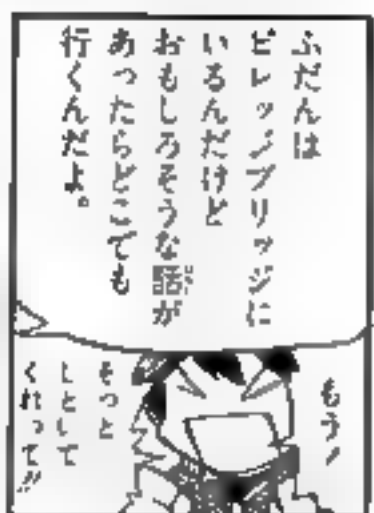 ふだんは
ビレッジブリッジに
いるんだけど
おもしろそうな話が
あったらどこでも
行くんだよ。
もう!
そっと
しといて
くれって!!